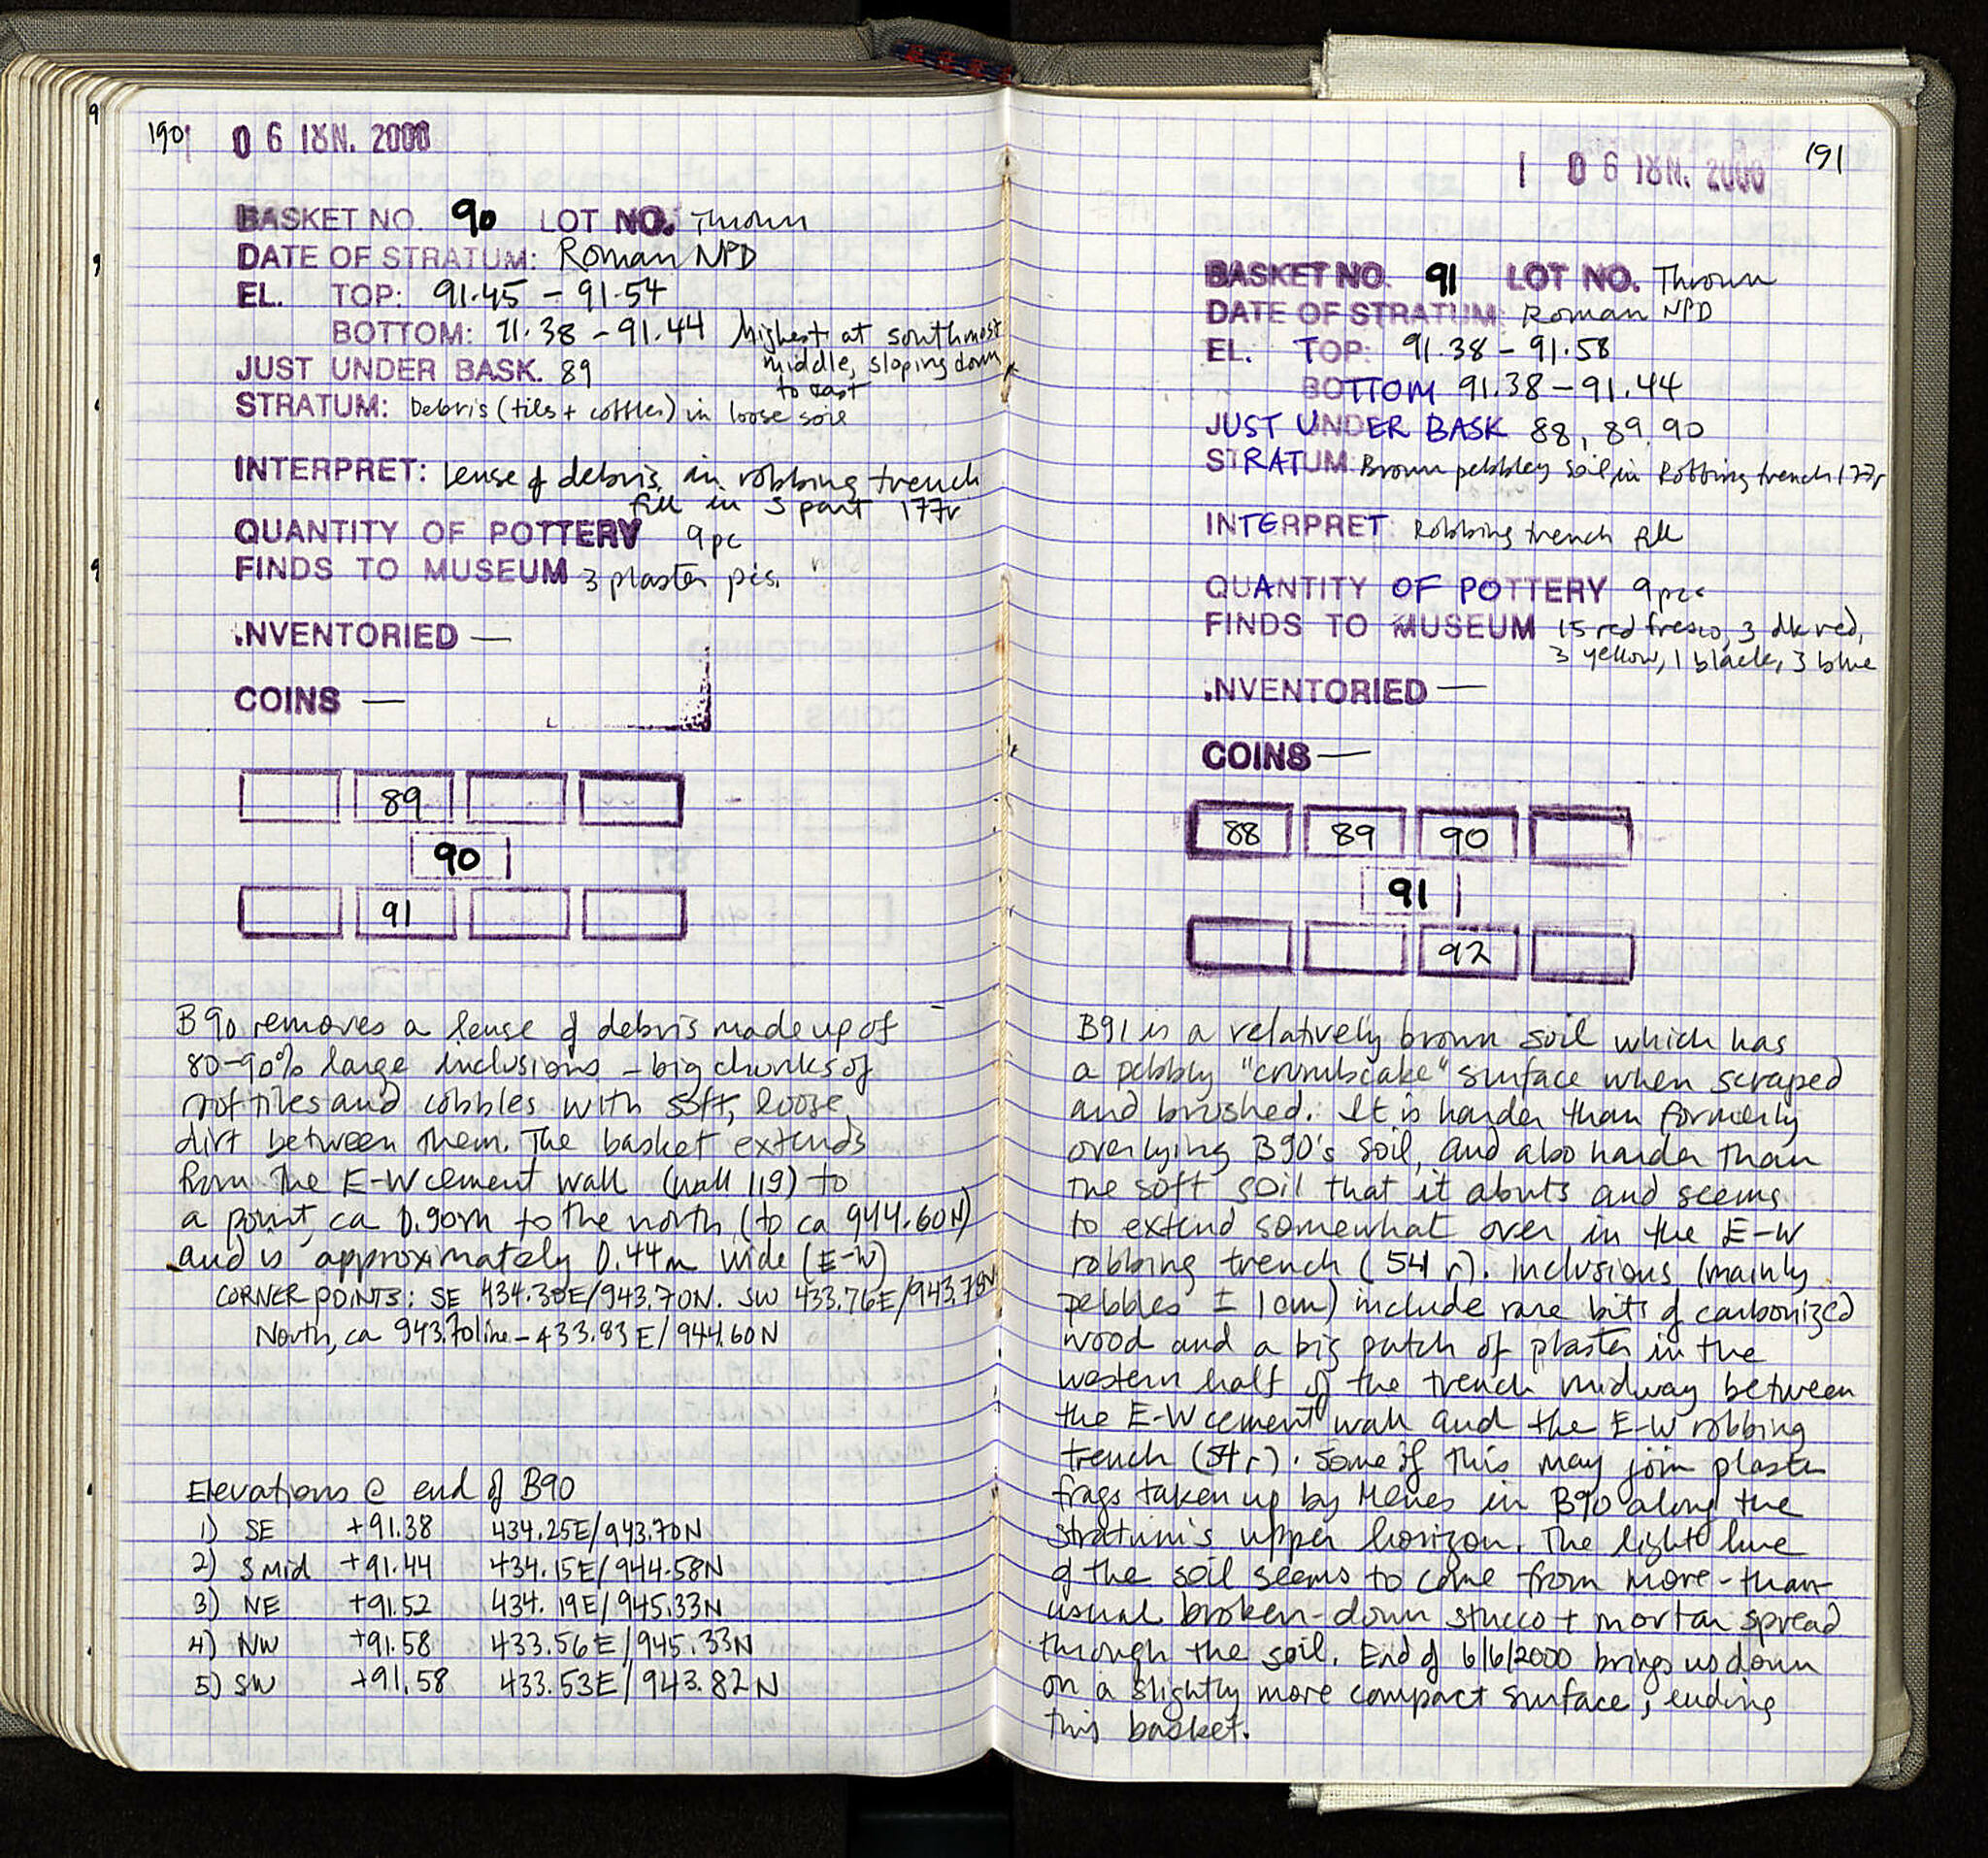 190
0 6 ΙΟΥΝ. 2000
BASKET NO. 90 LOT NO. Thrown
DATE OF STRATUM: Roman NPD
EL. TOP: 91.45 - 91.54
BOTTOM: 91.38 - 91.44 Highest at southmost
middle, sloping down
to east
JUST UNDER BASK. 89
STRATUM: Debris (tiles + cobbles) in loose soil
INTERPRET: Lense of debris in robbing trench
fill in S part 177r
QUANTITY OF POTTERY 9 pc
FINDS TO MUSEUM 3 plaster pcs.
INVENTORIED —
COINS —
89
90
91
B90 removes a lense of debris made up of
80-90% large inclusions - big chunks of
roof tiles and cobbles with soft, loose,
dirt between them. The basket extends
from the E-W cement wall (wall 119) to
a point ca 0.90m to the north (to ca 944.60N)
and is approximately 0.44m wide (E-W)
CORNER POINTS: SE 434.30E/943.70N. SW 433.76E/943.78N
North, ca 943.70 line - 433.83E/944.60N
Elevations @ end of B90
1) SE +91.38 434.25E/943.70N
2) S Mid +91.44 434.15E/944.58N
3) NE +91.52 434.19E/945.33N
4) NW +91.58 433.56E/945.33N
5) SW +91.58 433.53E/943.82N
191
0 6 ΙΟΥΝ. 2000
BASKET NO. 91 LOT NO. Thrown
DATE OF STRATUM: Roman NPD
EL. TOP: 91.38 - 91.58
BOTTOM 91.38 - 91.44
JUST UNDER BASK 88, 89, 90
STRATUM: Brown pebbley soil, in Robbing trench 177r
INTERPRET: Robbing trench fill
QUANTITY OF POTTERY 9 pcs
FINDS TO MUSEUM 15 red fresco, 3 dk red,
3 yellow, 1 black, 3 blue
INVENTORIED —
COINS —
88 89 90
91
92
B91 is a relatively brown soil which has
a pebbly "crumbcake" surface when scraped
and brushed. It is harder than formerly
overlying B90's soil, and also harder than
the soft soil that it abuts and seems
to extend somewhat over in the E-W
robbing trench (54r). Inclusions (mainly
pebbles ± 1cm) include rare bits of carbonized
wood and a big patch of plaster in the
western half of the trench midway between
the E-W cement wall and the E-W robbing
trench (54r). Some of this may join plaster
frags taken up by in B90 along the
stratum's upper horizon. The light hue
of the soil seems to come from more-than-
usual broken-down stucco + mortar spread
through the soil. End of 6/6/2000 brings us down
on a slightly more compact surface, ending
this basket.